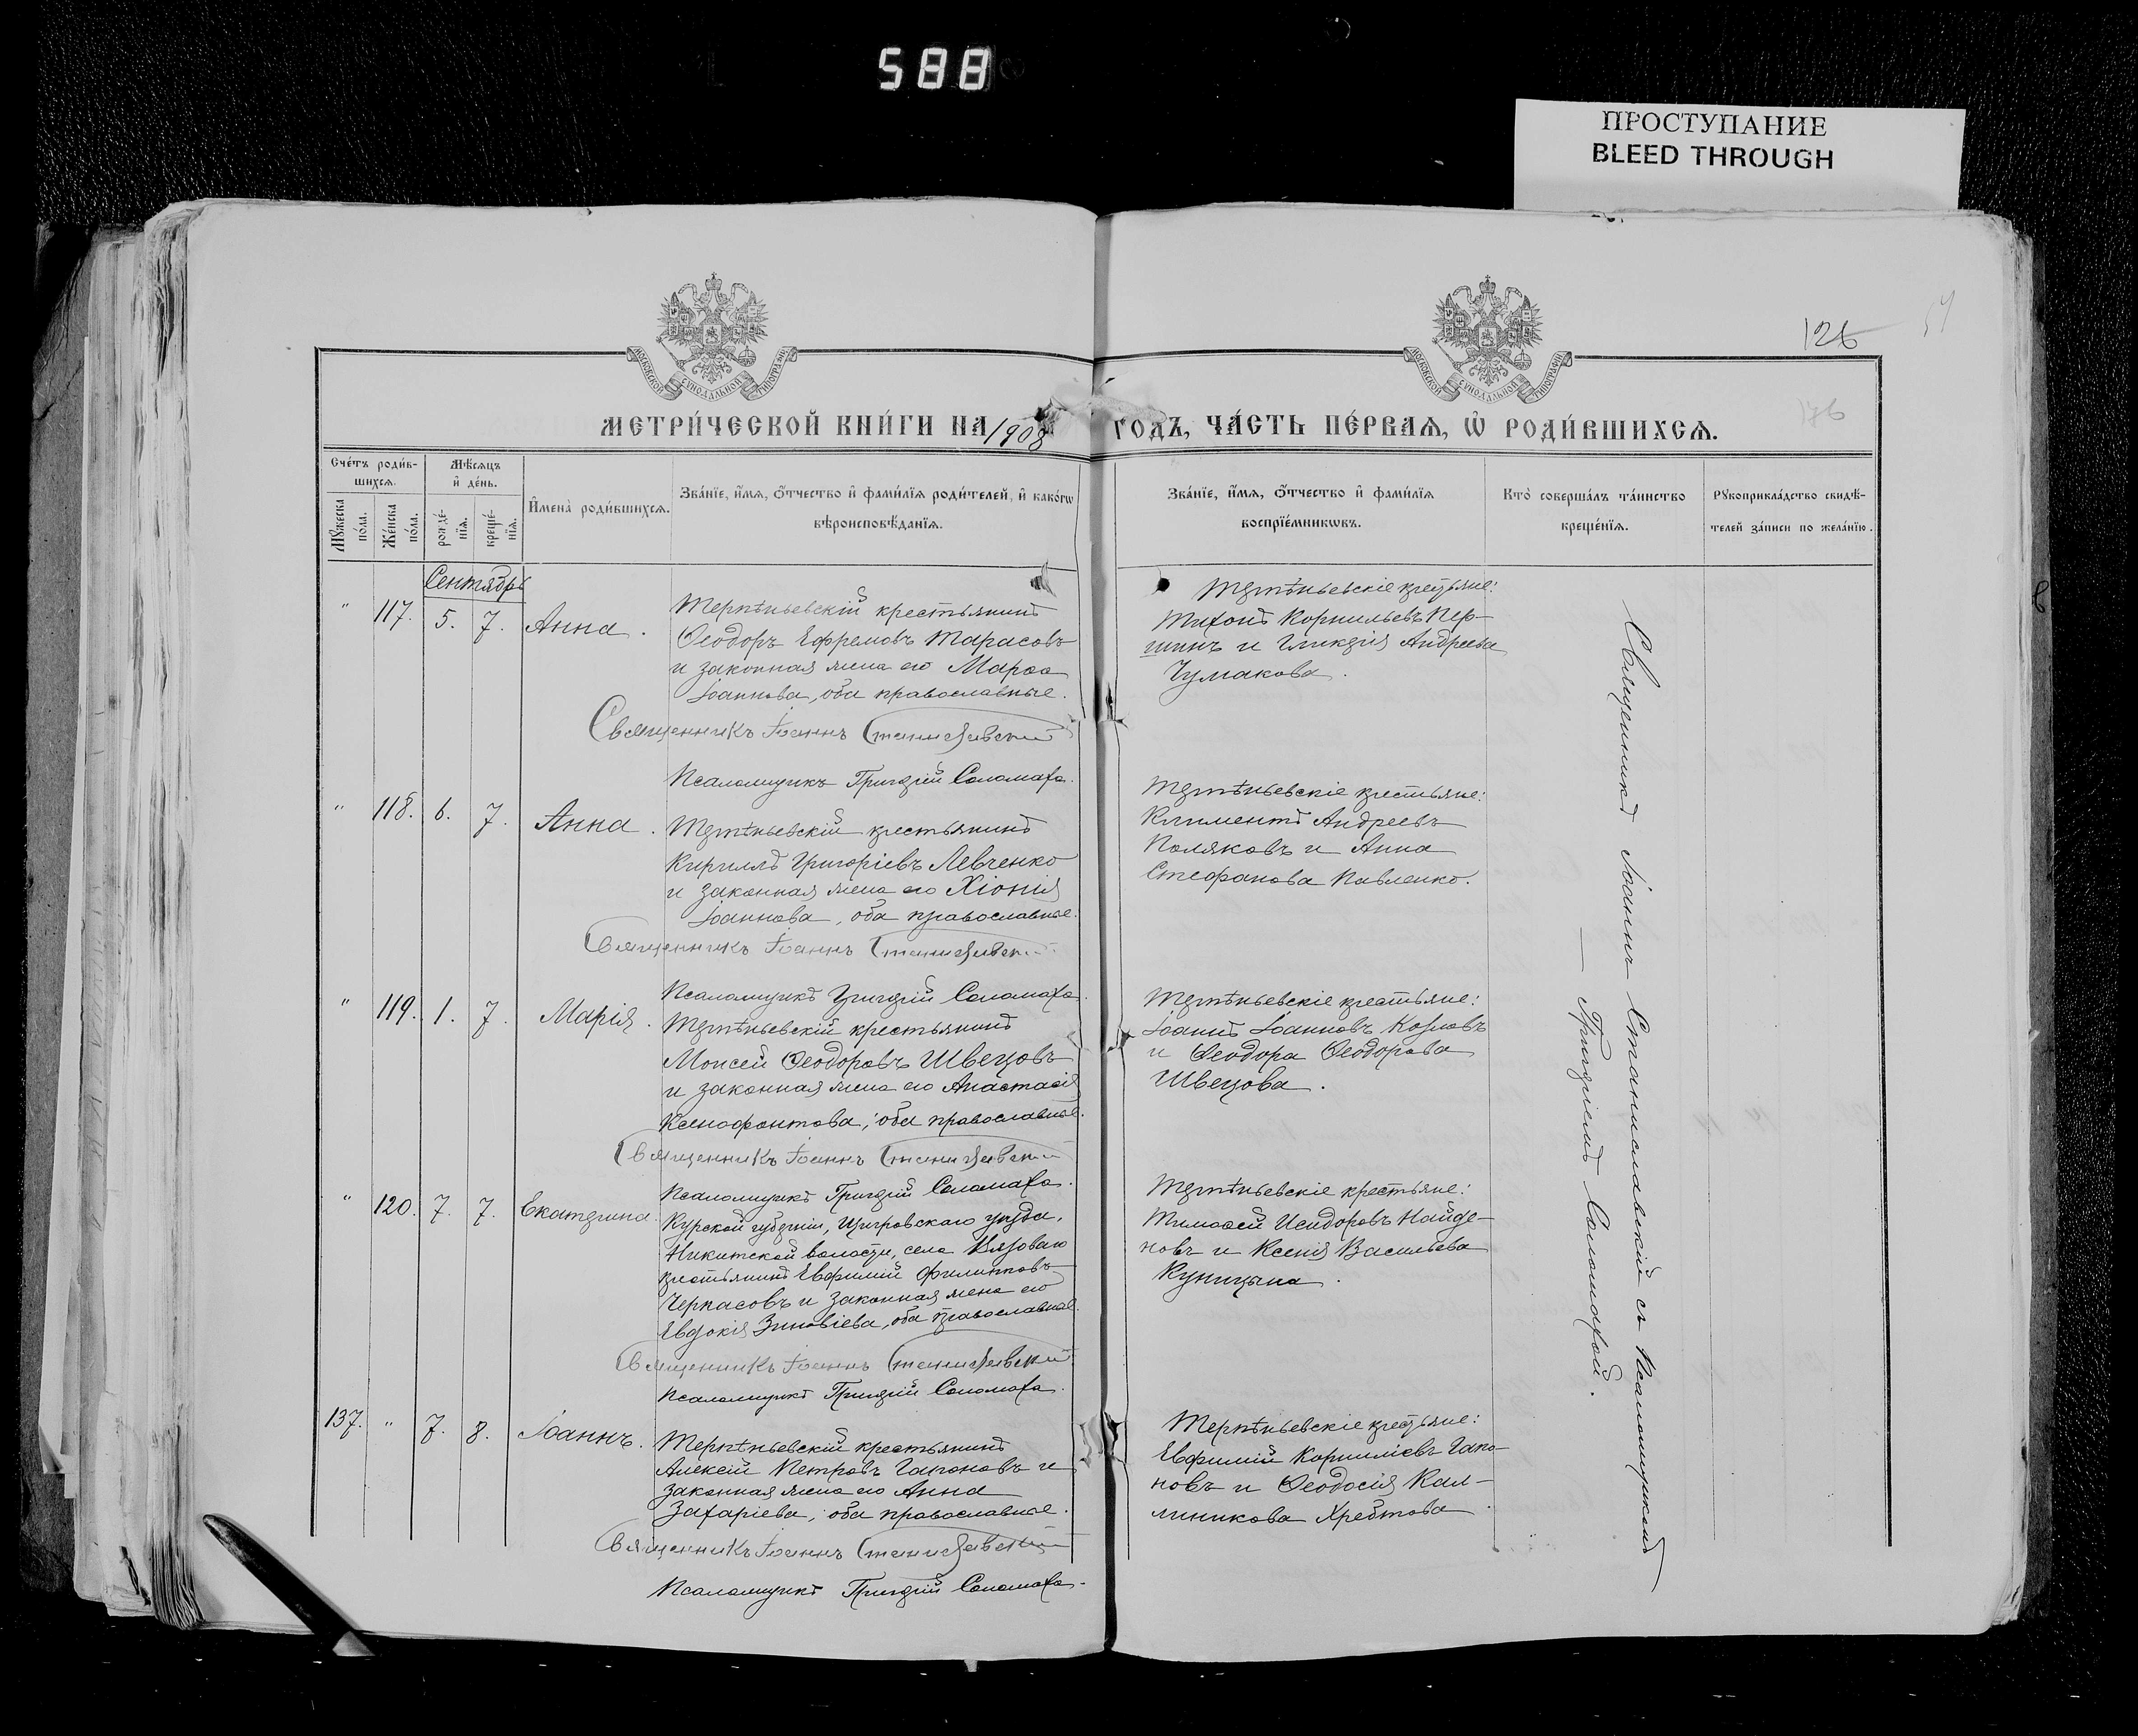 588
ПРОСТУПАНИЕ
BLEED THROUGH
126
176
МОСКОВСКОЙ СУНОДАЛЬНОЙ ТИПОГРАФІИ
МОСКОВСКОЙ СУНОДАЛЬНОЙ ТИПОГРАФІИ
МЕТРИ́ЧЕСКОЙ КНИ́ГИ НА 1908 ГОДЪ, ЧА́СТЬ ПЕ́РВАѦ, Ѡ҆ РОДИ́ВШИХСѦ.
Сче́тъ роди́в-
шихсѧ.
Мꙋ́жеска по́ла.
Же́нска по́ла.
Мѣ́сѧцъ
и҆ де́нь.
рожде́-
нїѧ.
креще́-
нїѧ.
И҆мена̀ роди́вшихсѧ.
Зва́нїе, и҆́мѧ, ѻ҆́тчество и҆ фами́лїѧ роди́телей, и҆ како́гѡ
вѣроисповѣ́данїѧ.
Зва́нїе, и҆́мѧ, ѻ҆́тчество и҆ фами́лїѧ
воспрїе́мникѡвъ.
Кто̀ соверша́лъ та́инство
креще́нїѧ.
Рꙋкоприкла́дство свидѣ́-
телей за́писи по жела́нїю.
Сентябрь
" 117. 5. 7. Анна.
Терпѣньевскій крестьянинъ
Ѳеодоръ Ефремовъ Тарасовъ
и законная жена его Марѳа
Іоаннова, оба православные.
Священникъ Іоаннъ Станиславскій
Псаломщикъ Григорій Соломаха.
Терпѣньевскіе крестьяне:
Тихонъ Корнильевъ Пер-
шинъ и Гликерія Андреева
Чумакова.
" 118. 6. 7. Анна.
Терпѣньевскій крестьянинъ
Кириллъ Григоріевъ Левченко
и законная жена его Хіонія
Іоаннова, оба православные.
Священникъ Іоаннъ Станиславскій
Псаломщикъ Григорій Соломаха.
Терпѣньевскіе крестьяне:
Климентъ Андреевъ
Поляковъ и Анна
Стефанова Павленко.
" 119. 1. 7. Марія.
Терпѣньевскій крестьянинъ
Моисей Ѳеодоровъ Швецовъ
и законная жена его Анастасія
Ксенофонтова, оба православные.
Священникъ Іоаннъ Станиславскій
Псаломщикъ Григорій Соломаха.
Терпѣньевскіе крестьяне:
Іоаннъ Іоанновъ Козловъ
и Ѳеодора Ѳеодорова
Швецова.
" 120. 7. 7. Екатерина.
Курской губерніи, Щигровскаго уѣзда,
Никитской волости, села Вязоваго
крестьянинъ Евфимій Филипповъ
Черкасовъ и законная жена его
Евдокія Зиновіева, оба православные.
Священникъ Іоаннъ Станиславскій
Псаломщикъ Григорій Соломаха.
Терпѣньевскіе крестьяне:
Тимоѳей Исидоровъ Найде-
новъ и Ксенія Васильева
Куницына.
137. " 7. 8. Іоаннъ.
Терпѣньевскій крестьянинъ
Алексій Петровъ Гапоновъ и
законная жена его Анна
Захаріева, оба православные.
Священникъ Іоаннъ Станиславскій
Псаломщикъ Григорій Соломаха.
Терпѣньевскіе крестьяне:
Евфимій Корниліевъ Гапо-
новъ и Ѳеодосія Кал-
линикова Хребтова.
Священникъ Іоаннъ Станиславскій съ Псаломщикомъ
— Григоріемъ Соломахой.